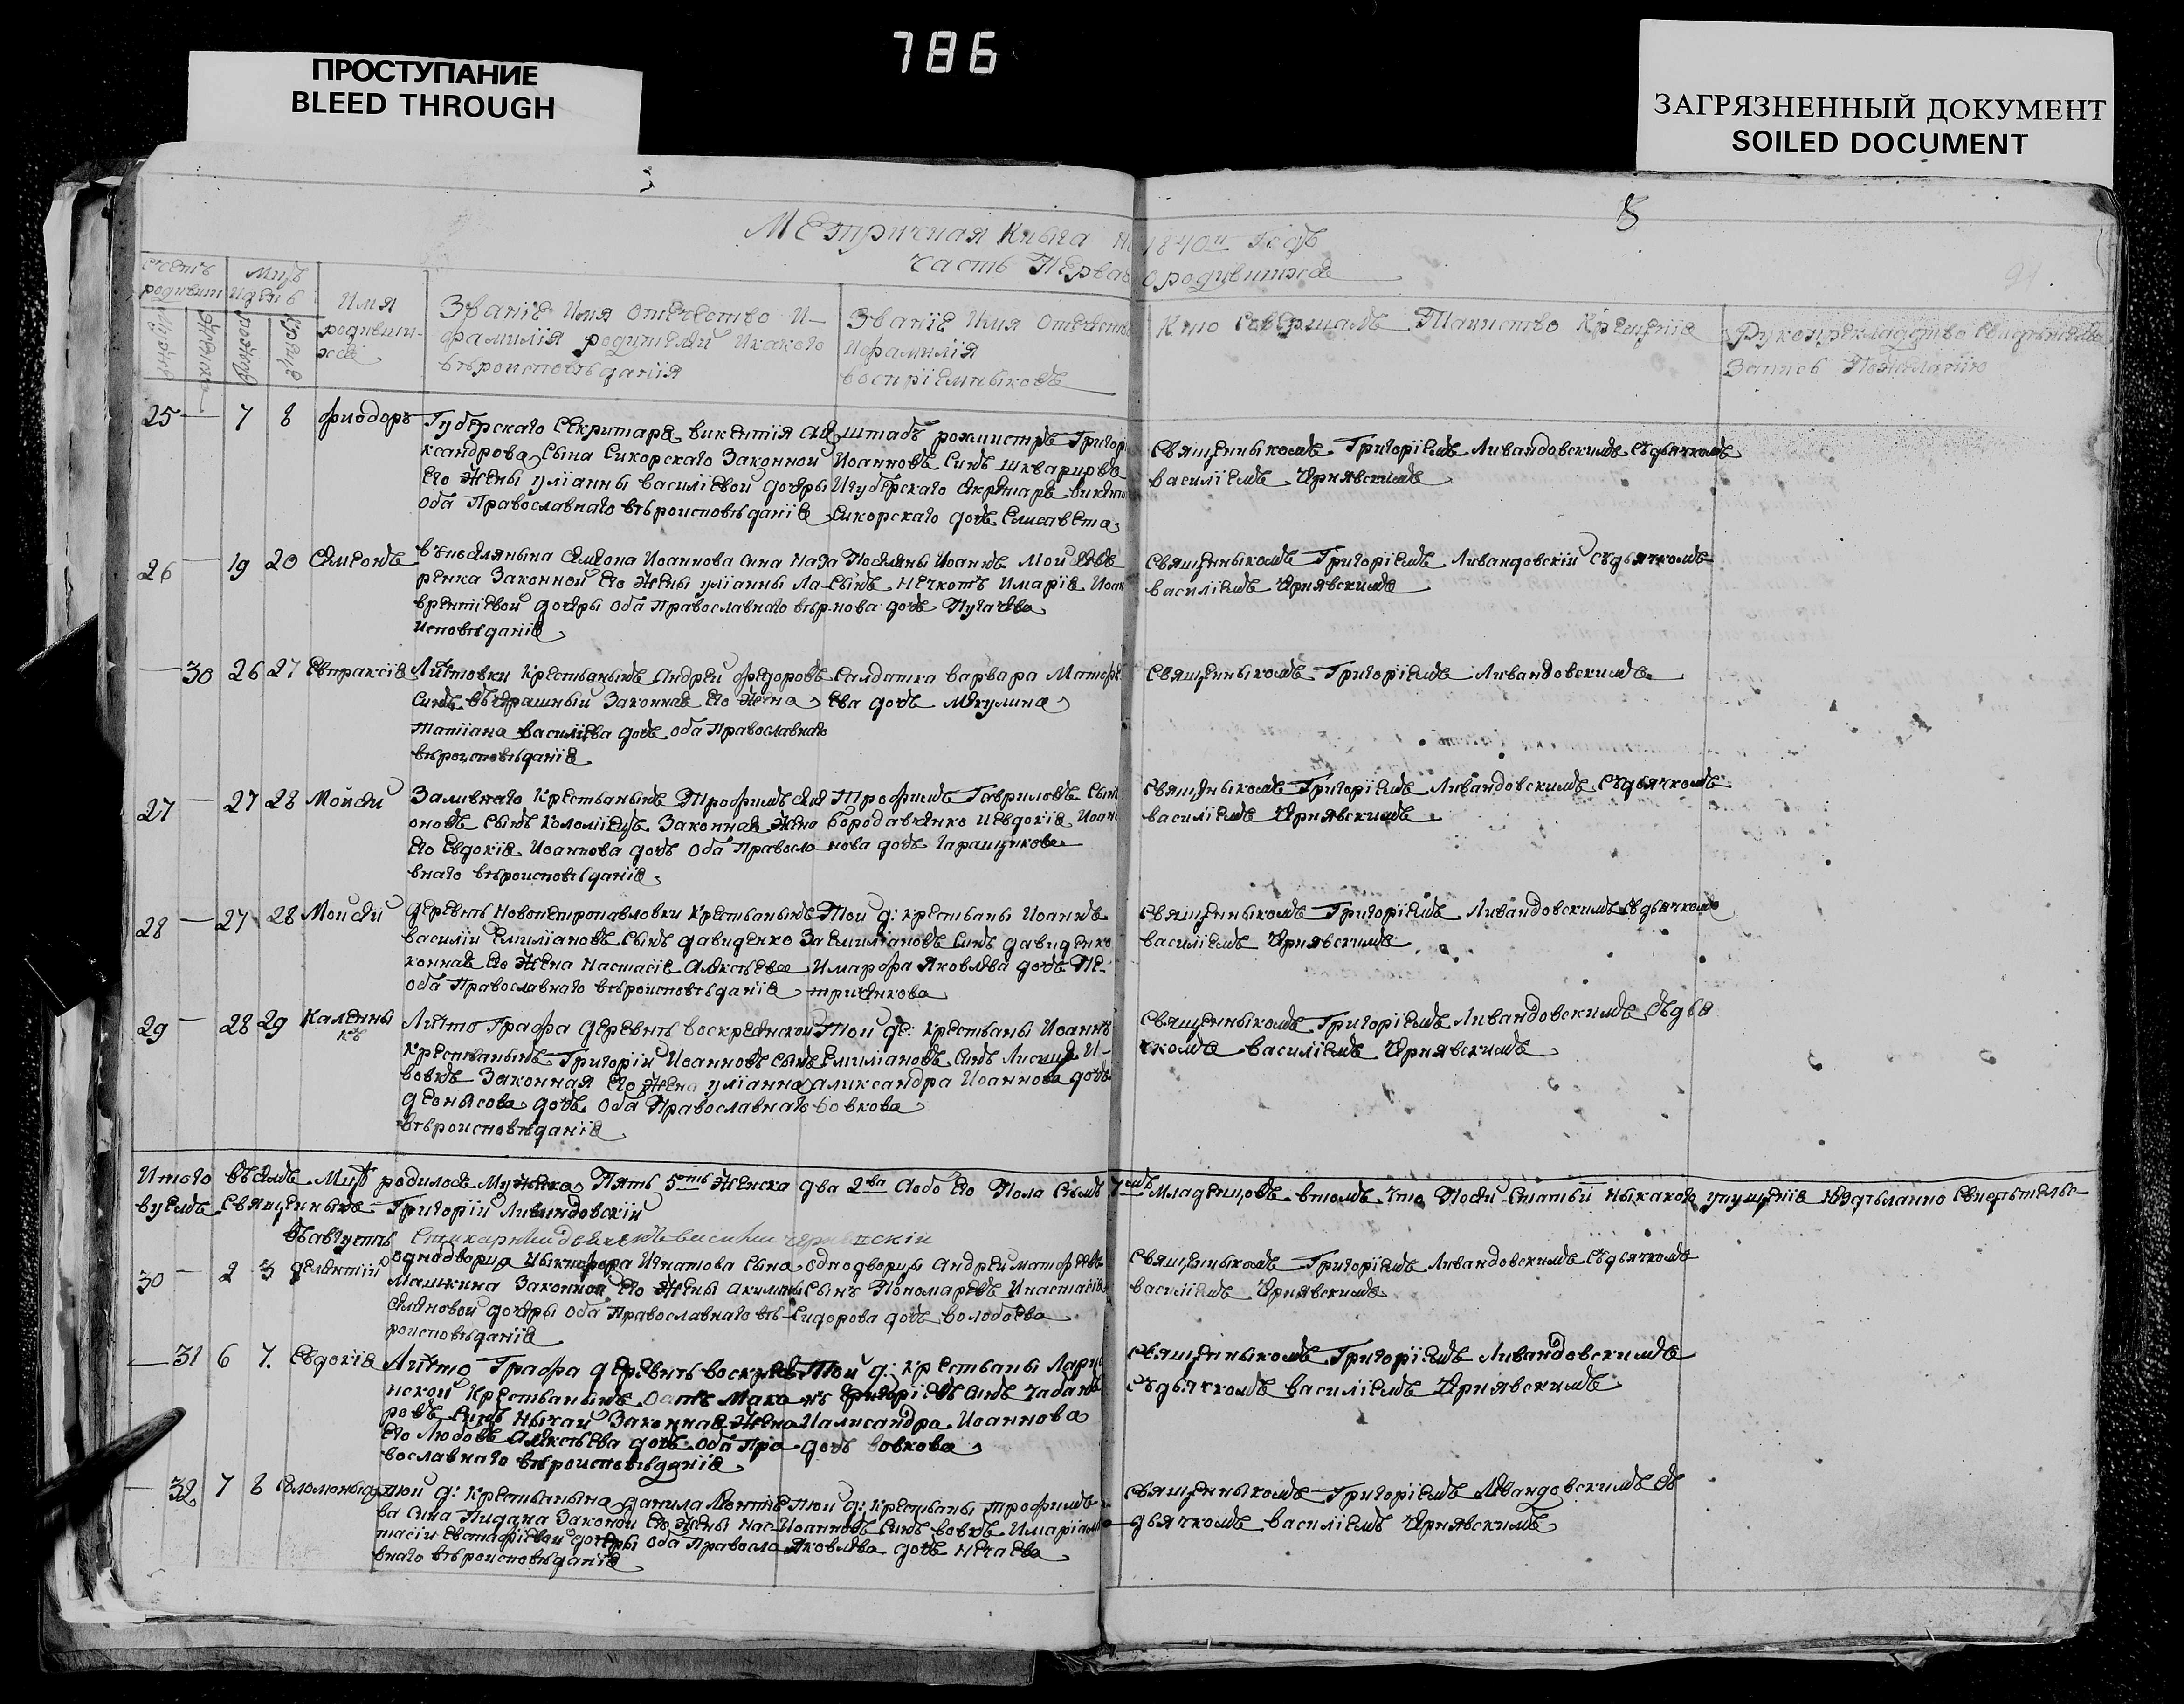 786
ПРОСТУПАНИЕ
BLEED THROUGH
ЗАГРЯЗНЕННЫЙ ДОКУМЕНТ
SOILED DOCUMENT
8
Метричная Книга на 1840й годъ
Часть Первая о родившихся
Имя
родивши-
хся
Званіе Имя Отечество И-
фамилія родителей Икакого
вѣроисповѣданія
Званіе Имя Отечество
Ифамилія
воспріемныковъ
Кто Совершалъ Таинство Крещенія
Рукоприкладство Свидѣтелей
Запись Пожеланію
25 — 7 8 Фиодоръ
Губерскаго Секритаря викентія Але
ксандрова Сына Сикорскаго Законной
Его Жены уліанны василіевой дочеры
оба Православнаго вѣроисповѣданія
штабъ рохмистръ Григор
Иоанновъ Синъ шкваркровъ
Игуберскаго Секретаря викент
Сикорскаго дочь Елисавета
Священныкомъ Григоріемъ Ливандовскимъ Съдьячкомъ
василіемъ Чернявскимъ
26 — 19 20 Симеонъ
въпоселянына Симеона Иоаннова Сина Наза
ренка Законной Его Жены уліанны Ла-
врентіевой дочеры оба Православнаго вѣр.
Исповѣданія
Поселяны Иоаннъ Мойсеевъ
Сынъ Нечкотъ Имарія Иоан
нова дочь Пугачева
Священыкомъ Григоріемъ Ливандовскій Съдьячкомъ
василіемъ Чернявскимъ
— 30 26 27 Евпраксія
Литовки Крестьянынъ Андрей Федоровъ
Синъ Законная Его Жена
Татіана василіева дочь оба Православнаго
вѣроисповѣданія
Салдатка варвара Матфе
ева дочь Мекулина
Священныкомъ Григоріемъ Ливандовскимъ
27 — 27 28 Мойсей
Заливнаго Крестьянынъ Трофимъ Сим
оновъ Сынъ Коломіецъ Законная Жена
Его Евдокія Иоаннова дочь Оба Правосла
внаго вѣроисповѣданія
Трофимъ Гавриловъ Сын
бородавченко Иевдокія Иоан
нова дочь Гаращенкова
Священыкомъ Григоріемъ Ливандовскимъ Съдьячкомъ
василіемъ Чернявскимъ
28 — 27 28 Мойсей
деревнѣ Новопетропавловки Крестьянынъ
василій Емиліановъ Сынъ давиденко За
конная Его Жена Настасія Алексѣева
оба Православнаго вѣроисповѣданія
Той д: крестьяны Иоаннъ
Емиліановъ Синъ давиденко
Имарфа Яковлева дочь Пе-
триченкова
Священыкомъ Григоріемъ Ливандовскимъ Съдьячкомъ
василіемъ Чернявскимъ
29 — 28 29 Каленны
къ
Литто Графа деревнѣ воскресенской
Крестьянынъ Григорій Иоанновъ Сынъ
вовкъ Законная Его Жена уліанна
денысова дочь оба Православнаго
вѣроисповѣданія
Той де: крестьяны Иоаннъ
Емиліановъ Синъ И-
александра Иоаннова дочь
вовкова
Священыкомъ Григоріемъ Ливандовскимъ Съдья
чкомъ василіемъ Чернявскимъ
Итого въ Июлѣ М родилося Мужеска Пять 5ть Женска два 2ва Аобо Его Пола Семь 7мъ Младенцовъ втомъ что Посей Статьи Ныкакого упущенія Нездѣланно Свидетельс-
вуемъ Священныкъ Григорій Ливандовскій
въавгустѣ
30 — 2 3
однодворца Ныкифора Игнатова Сына
Машкина Законной Его Жены акилины
Семеновой дочеры оба Православнаго вѣ-
роисповѣданія
однодворцы Андрей Матфеевъ
Сынъ Пономаревъ Инастасія
Сидорова дочь волобоева
Священыкомъ Григоріемъ Ливандовскимъ Съдьячкомъ
василіемъ Чернявскимъ
— 31 6 7. Евдокія
Литто Графа деревнѣ воскресе
нской Крестьянынъ Мака
ровъ Синъ Ныкай Законная Жена
Его Любовь Алексѣева дочь Оба Пра
вославнаго вѣроисповѣданія
Той д: крестьяны Лари
нъ Григоріевъ Синъ Чабанъ
Иалисандра Иоаннова
дочь вовкова
Священныкомъ Григоріемъ Ливандовскимъ
Съдьячкомъ василіемъ Чернявскимъ
— 32 7 8 Соломоныда
той д: Крестьянына данила Леонтіе
ва Сина Лидана Законой Его Жены Нас-
тасіи Евстафіевой дочеры оба Правосла
внаго вѣроисповѣданія
той д: крестьяны Трофимъ
Иоанновъ Синъ вовкъ Имаріа
Яковлева дочь Нечаева
Священыкомъ Григоріемъ Левандовскимъ Съ
дьячкомъ василіемъ Чернявскимъ